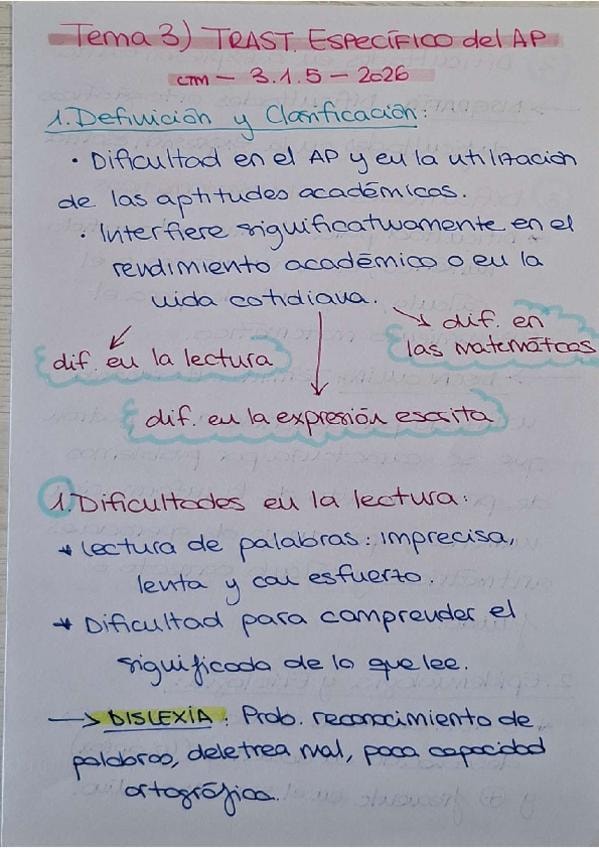 Tema 3) TRAST. ESPECÍFICO del AP
CTM - 3.1.5 - 2026
1. Definición y Clasificación:
• Dificultad en el AP y en la utilización
de las aptitudes académicas.
• Interfiere significativamente en el
rendimiento académico o en la
vida cotidiana.
dif. en
las matemáticas
dif. en la lectura
dif. en la expresión escrita
1. Dificultades en la lectura:
* Lectura de palabras: imprecisa,
lenta y con esfuerzo.
* Dificultad para comprender el
significado de lo que lee.
→ DISLEXIA: Prob. reconocimiento de
palabras, deletrea mal, poca capacidad
ortográfica.